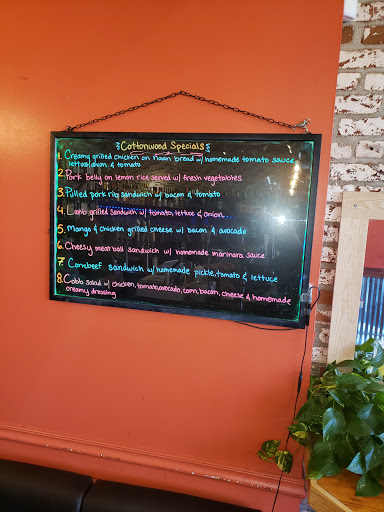 Cottonwood Specials
1. Creamy grilled chicken on naan bread w/ homemade tomato sauce
lettuce, onion & tomato
2. Pork belly on lemon rice served w/ fresh vegetables
3. Pulled pork rib sandwich w/ bacon & tomato
4. Lamb grilled sandwich w/ tomato, lettuce & onion
5. Mango & chicken grilled cheese w/ bacon & avocado
6. Cheesy meatball sandwich w/ homemade marinara sauce
7. Cornbeef sandwich w/ homemade pickle, tomato & lettuce
8. Cobb salad w/ chicken, tomato, avocado, corn, bacon, cheese & homemade
creamy dressing